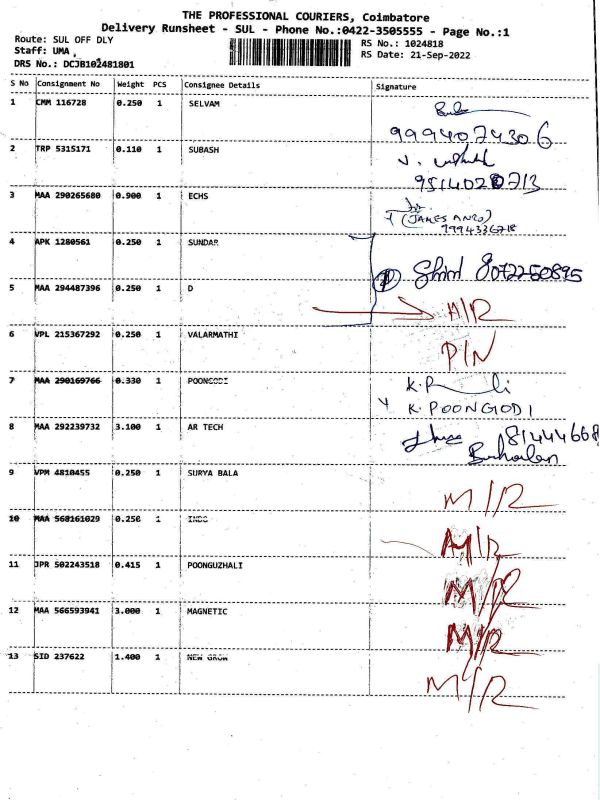 THE PROFESSIONAL COURIERS, Coimbatore
Delivery Runsheet - SUL - Phone No.:0422-3505555 - Page No.:1
Route: SUL OFF DLY
RS No.: 1024818
Staff: UMA
RS Date: 21-Sep-2022
DRS No.: DCJB102481801
S No Consignment No Weight PCS Consignee Details Signature
1 CMM 116728 0.250 1 SELVAM
9994074306
2 TRP 5315171 0.110 1 SUBASH
9514028713
3 MAA 290265680 0.900 1 ECHS
(JAMES ANTO)
9994336718
4 APK 1280561 0.250 1 SUNDAR
8072250895
5 MAA 294487396 0.250 1 D
A/R
6 VPL 215367292 0.250 1 VALARMATHI
P/N
7 MAA 290169766 0.330 1 POONGODI
K. POONGODI
8 MAA 292239732 3.100 1 AR TECH
81444668
9 VPM 4810455 0.250 1 SURYA BALA
M/R
10 MAA 568161029 0.250 1 INDO
M/R
11 JPR 502243518 0.415 1 POONGUZHALI
M/R
12 MAA 566593941 3.000 1 MAGNETIC
M/R
13 SID 237622 1.400 1 NEW GROW
M/R